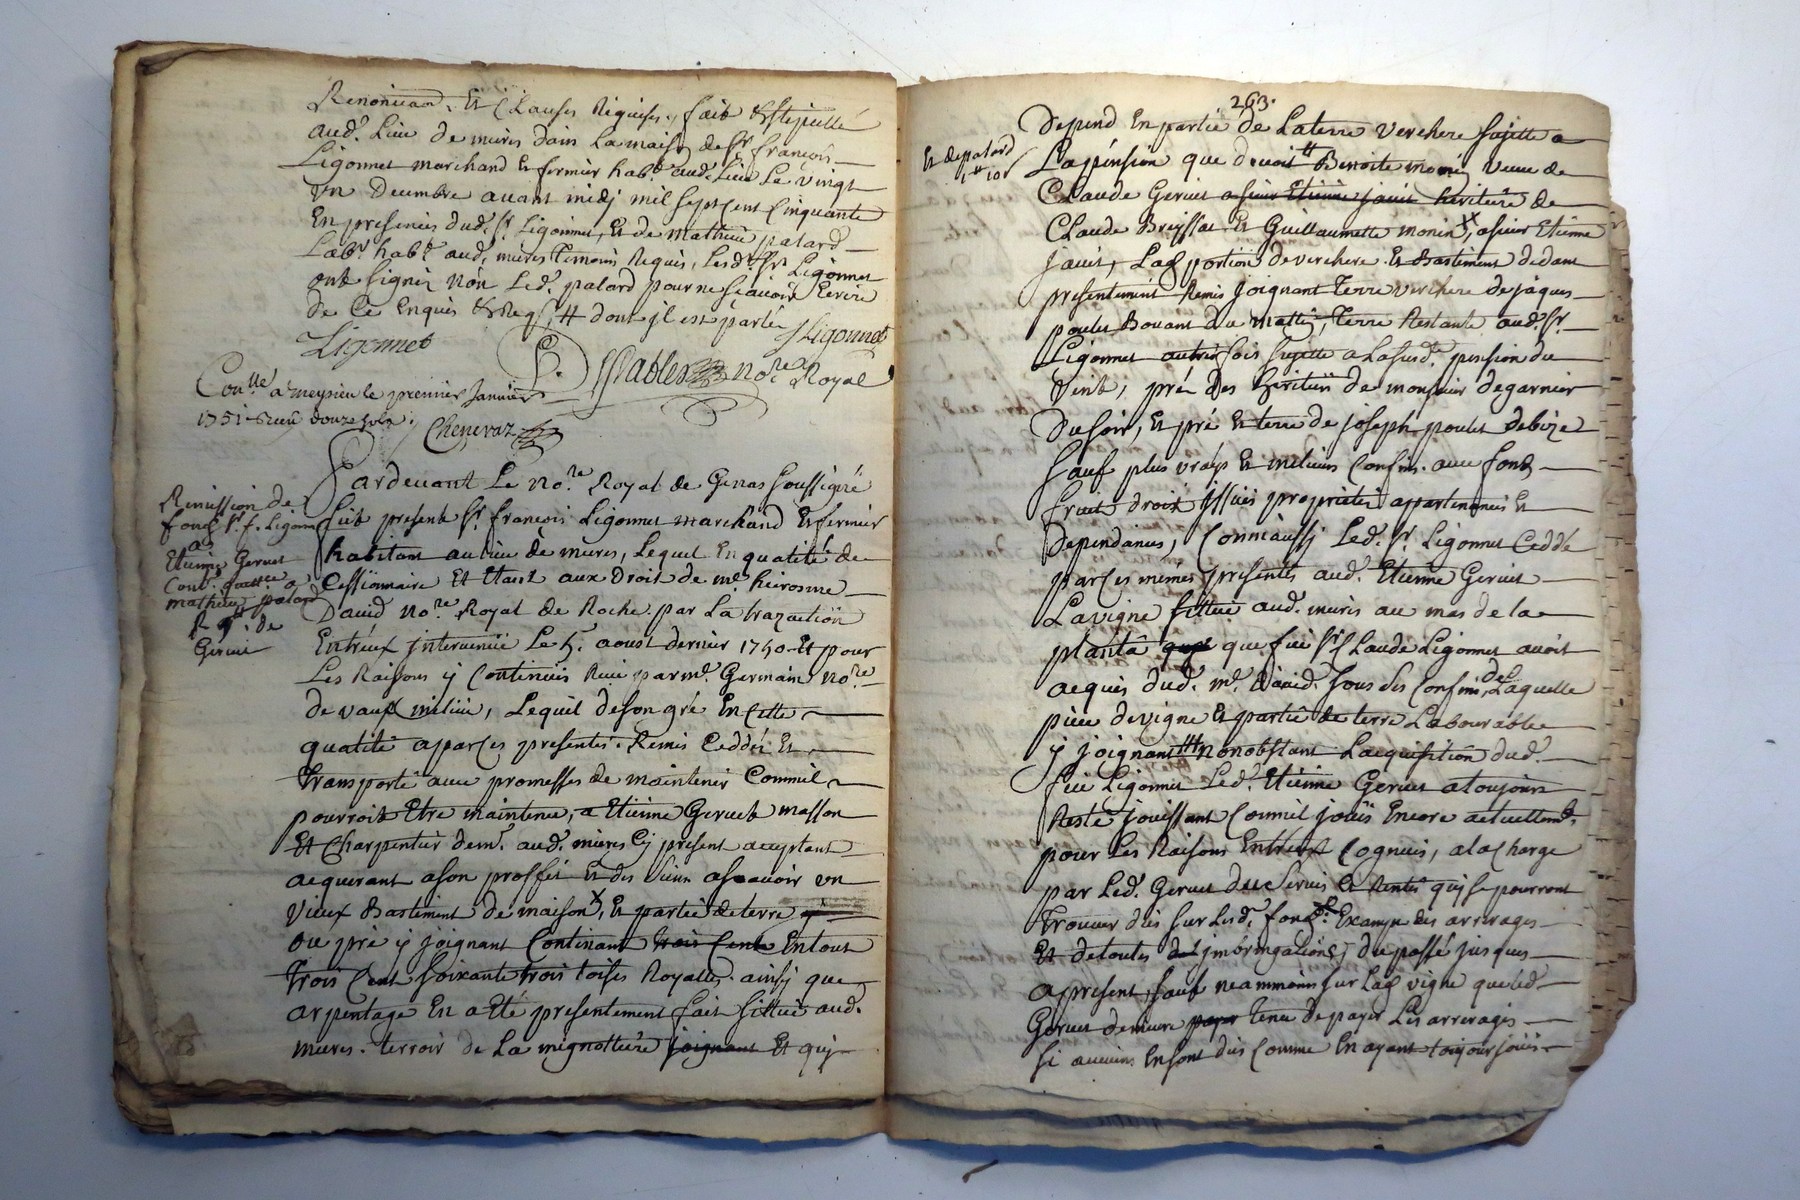 Renonciaon. Et Clauses Requises, fait & stipullé
aud.t Lieu de mures dans La maison de Sr françois
Ligonnet marchand et fermier hab.t aud. Lieu Le vingt
un Decembre avant midj mil sept cent Cinquante
En presences dud. Sr. Ligonnet, Et de Mathieu patard
Lab.r hab.t aud. mures temoins Requis, Lesd. Srs Ligonnet
ont signéz non Led. patard pour ne sçavoir Ecrire
de Ce Enquis & Req.s dont jl est partie
Ligonnet
JLigonnet
Nore Royal
Con.lle a meysieu le premier Janvier
1751 Reçu douze sols
Chenevaz
Remission de
fonds Sr. f. Ligonnet
a
Etienne Gervet
Cont. quittce a
mathieu patard
de
Gervet
Pardevant Le No.re Royal de Genas soussigné
fut present Sr. françois Ligonnet marchand Et fermier
habitant au lieu de mures, Lequel En qualité de
Cessionnaire Et Etant aux droit de me. hierosme
David No.re Royal de Roche par La tranzaction
Entreux jntervenüe Le 5. aoust dernier 1750 Et pour
Les Raisons y Contenües Reçue par me. Germain No.re
de vaux milieu, Lequel de son gré En Cette
qualité a par Ces presentes Remis Ceddé Et
transporté avec promesses de maintenir Comme il
pourroit Etre maintenu, a Etienne Gervet masson
Et Charpentier dem.t aud. mures Cy present acceptant
acquerant a son proffit Et des siens asçavoir un
vieux Bastiment de maison, Et partie de terre
ou pré y joignant Contenant trois Cent En tout
trois Cent soixante trois toises Royalles ainsj que
arpentage En a Eté presentement fait sittué aud.
mures terroir de La mignottiere joignant Et quj
263.
Et de patard
1 tt 10 s
Depend En partie de La terre verchere sujette a
La pension que devoit Benoite monin veuve de
Claude Gervet a sieur Etienne javit heritiere de
Claude Breyssat Et Guillaumette monin, a sieur Etienne
javit, Lad. portion de verchere Et Bastiment dedans
presentement Remis joignant terre verchere de jaques
poulet Bovant du mattin, terre Restante aud. Sr.
Ligonnet autrefois sujette a La susd.te pension du
vent, pré des heritiers de monsieur degarnier
du soir, Et pré Et terre de joseph poulet de bize
sauf plus vrays Et meilieurs Confins avec fonds
fruits droits jssües proprietés appartenances Et
dependances, Comme aussj Led. Sr. Ligonnet Cedde
par Ces mêmes presentes aud. Etienne Gervet
La vigne sittuée aud. mures au mas de la
planta que feu Sr Claude Ligonnet avoit
acquis dud. me. David. sous ses Confins, de Laquelle
piece de vigne Et partie de terre Labourable
y joignant nonobstant L'acquisition dud.
feu Ligonnet Led. Etienne Gervet a toujours
Resté joüissant Comme il joüis Encore actuellem.t
pour Les Raisons Entreux Cognües, a la Charge
par Led. Gervet des servis Et Rentes quj se pourront
trouver dûs sur Lesd. fonds Exampt des arrerages
Et de toutes jmbringations du passé jusques
a present, sauf neammoins sur Lad. vigne que led.
Gervet demeure tenu de payer Les arrerages
si aucuns En sont dûs Comme En ayant toujours joüis